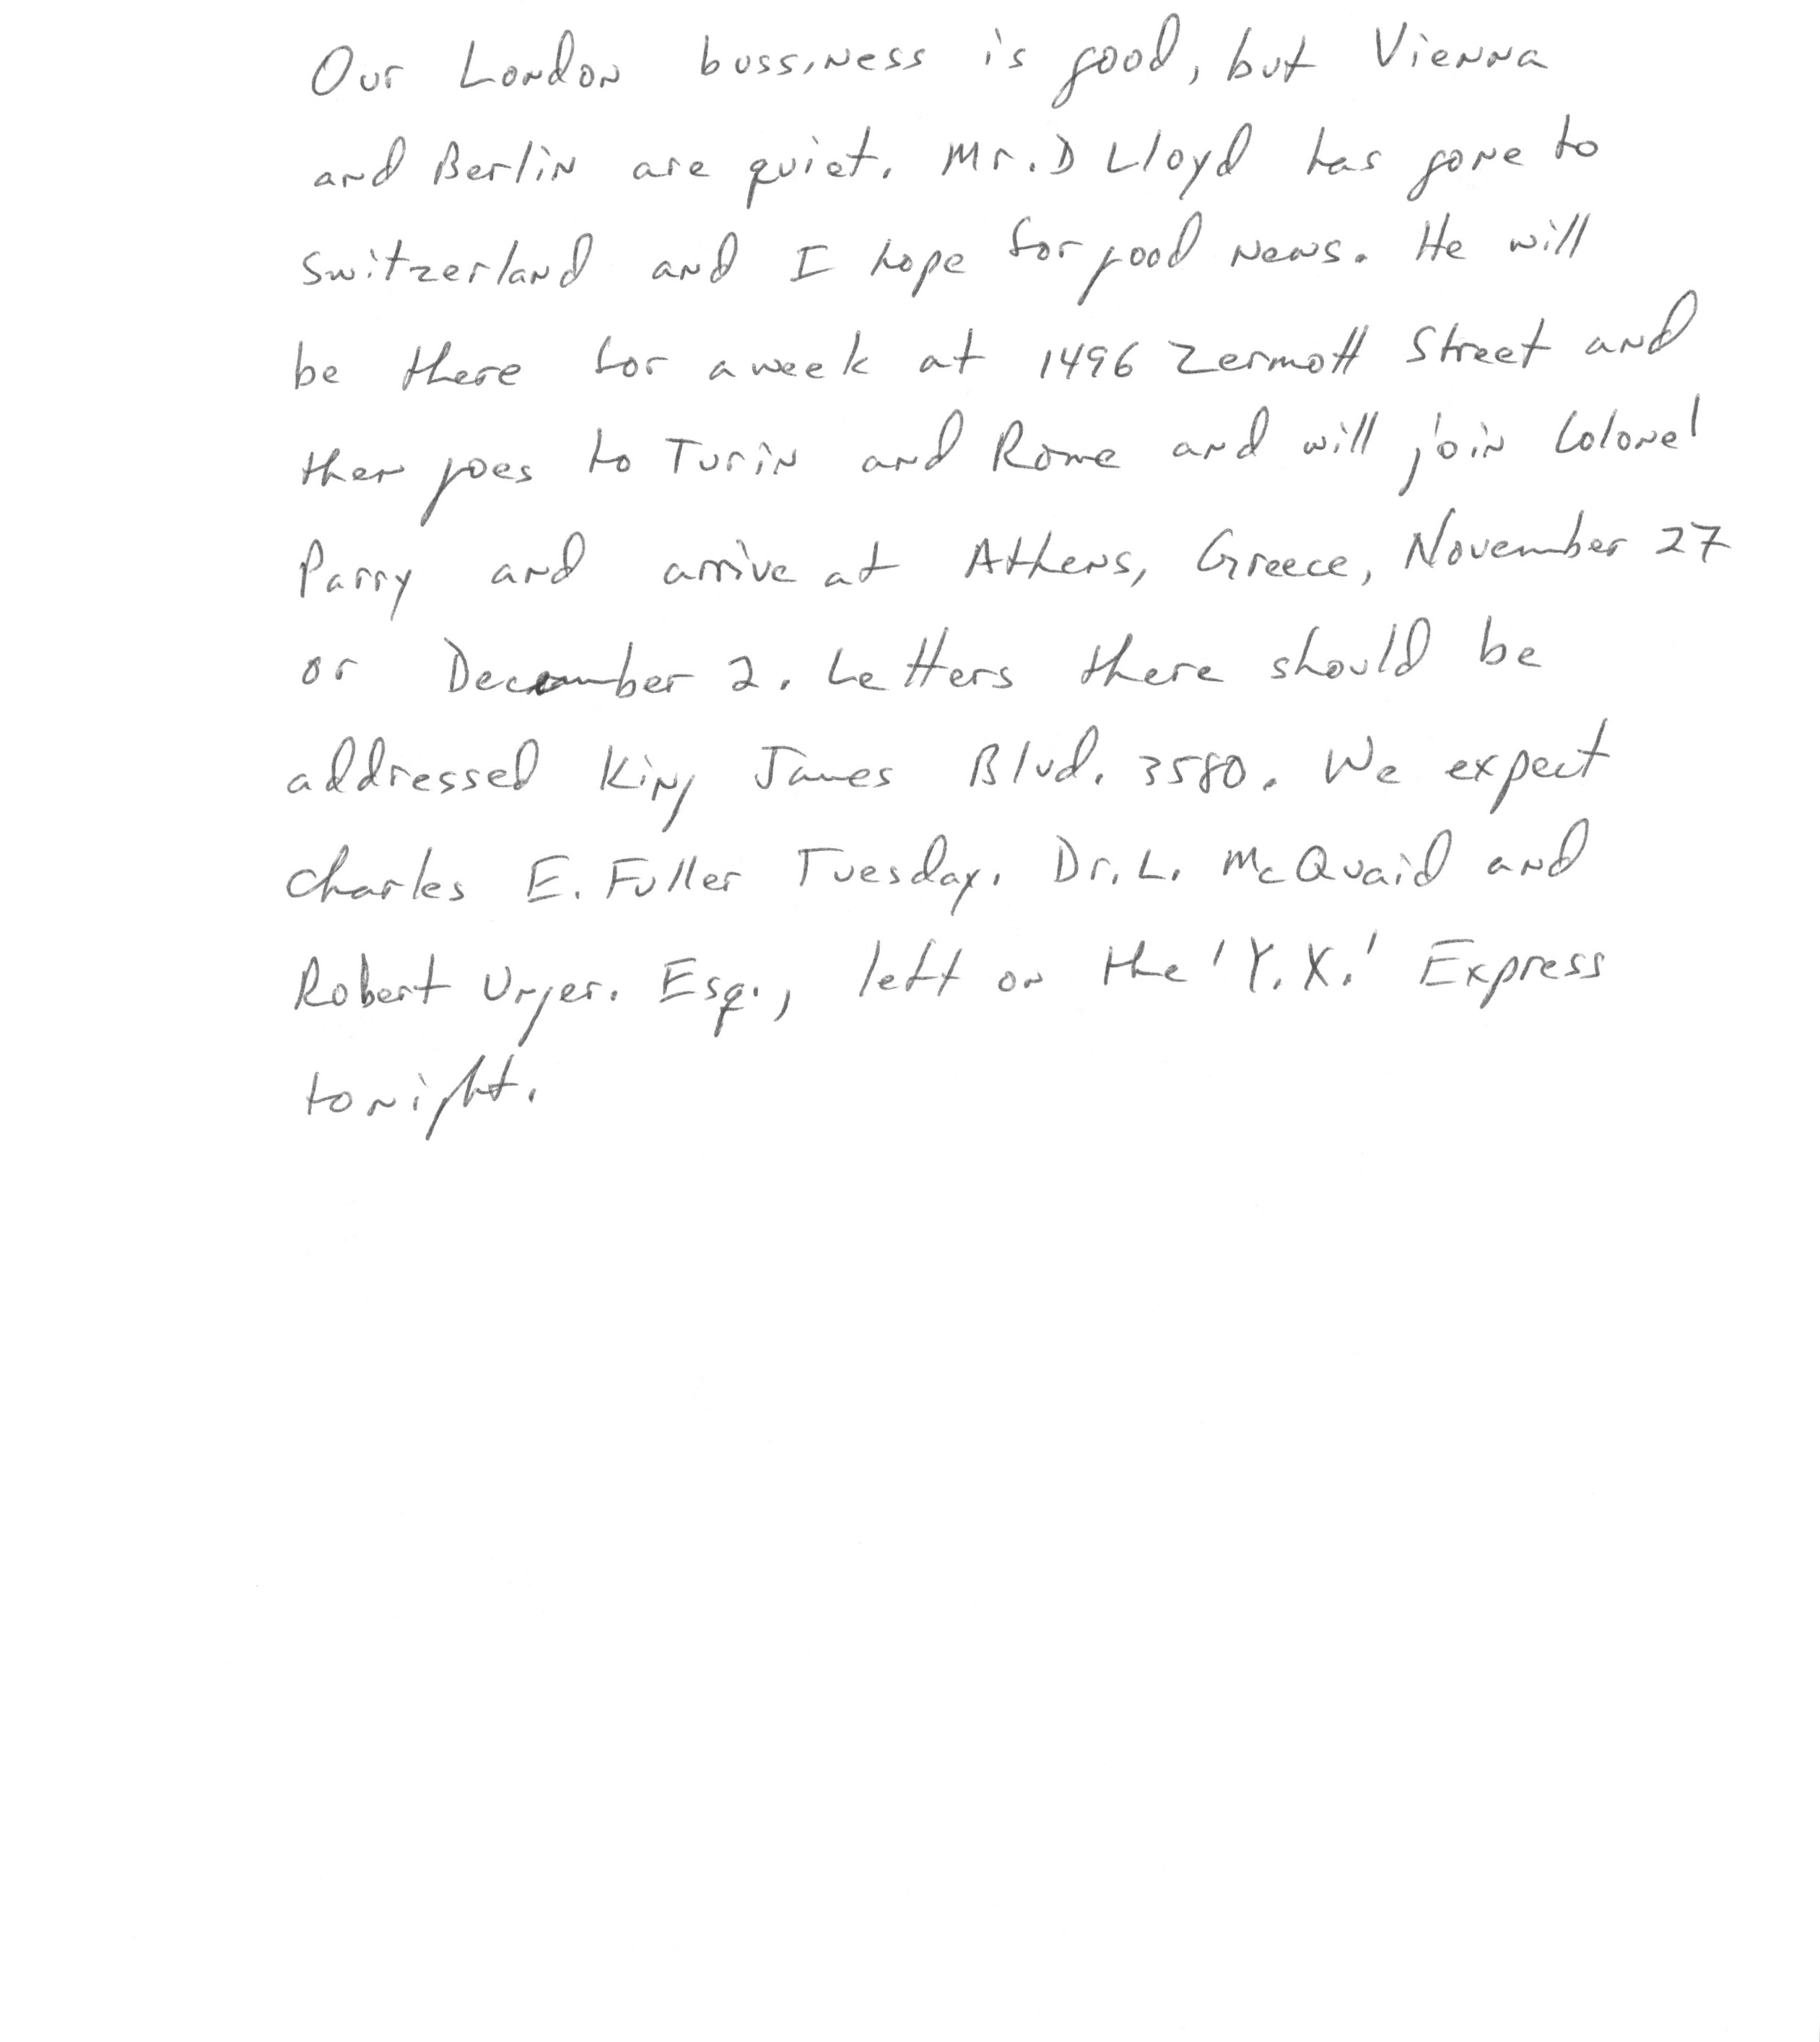 Our London bussiness is good, but Vienna
and Berlin are quiet. Mr. D Lloyd has gone to
Switzerland and I hope for good news. He will
be there for a week at 1496 Zermott Street and
then goes to Turin and Rome and will join Colonel
Parry and arrive at Athens, Greece, November 27
or December 2. Letters there should be
addressed King James Blvd. 3580. We expect
Charles E. Fuller Tuesday. Dr. L. McQuaid and
Robert Unger. Esq., left on the 'Y.X.' Express
tonight.